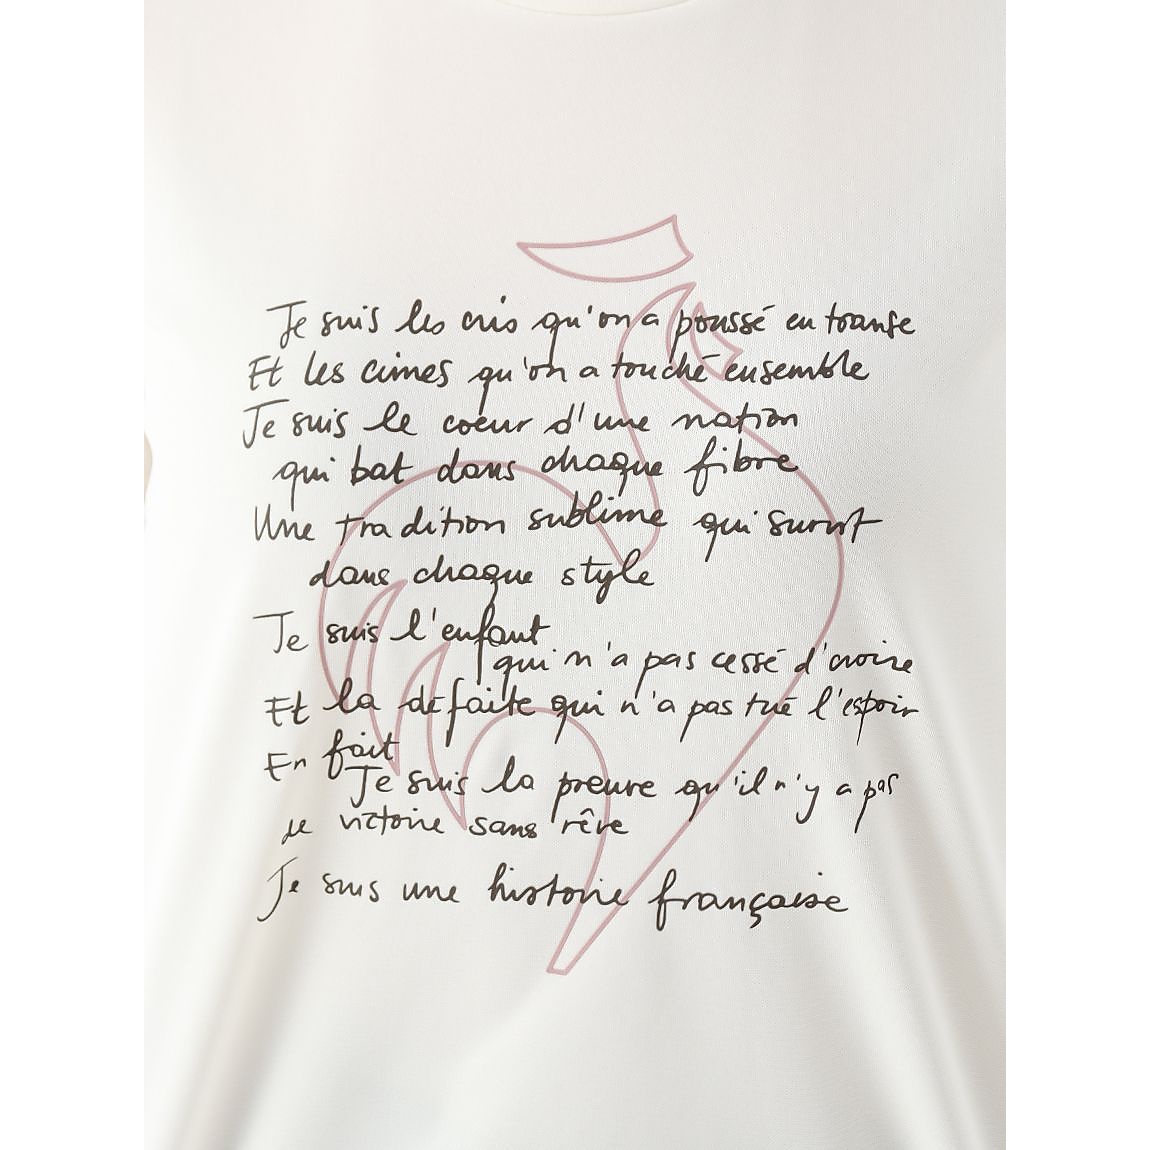 Je suis les cris qu'on a poussé en transe
Et les cimes qu'on a touché ensemble
Je suis le coeur d'une nation
qui bat dans chaque fibre
Une tradition sublime qui survit
dans chaque style
Je suis l'enfant
qui n'a pas cessé d'croire
Et la défaite qui n'a pas tué l'espoir
En fait
Je suis la preuve qu'il n'y a pas
de victoire sans rêve
Je suis une histoire française